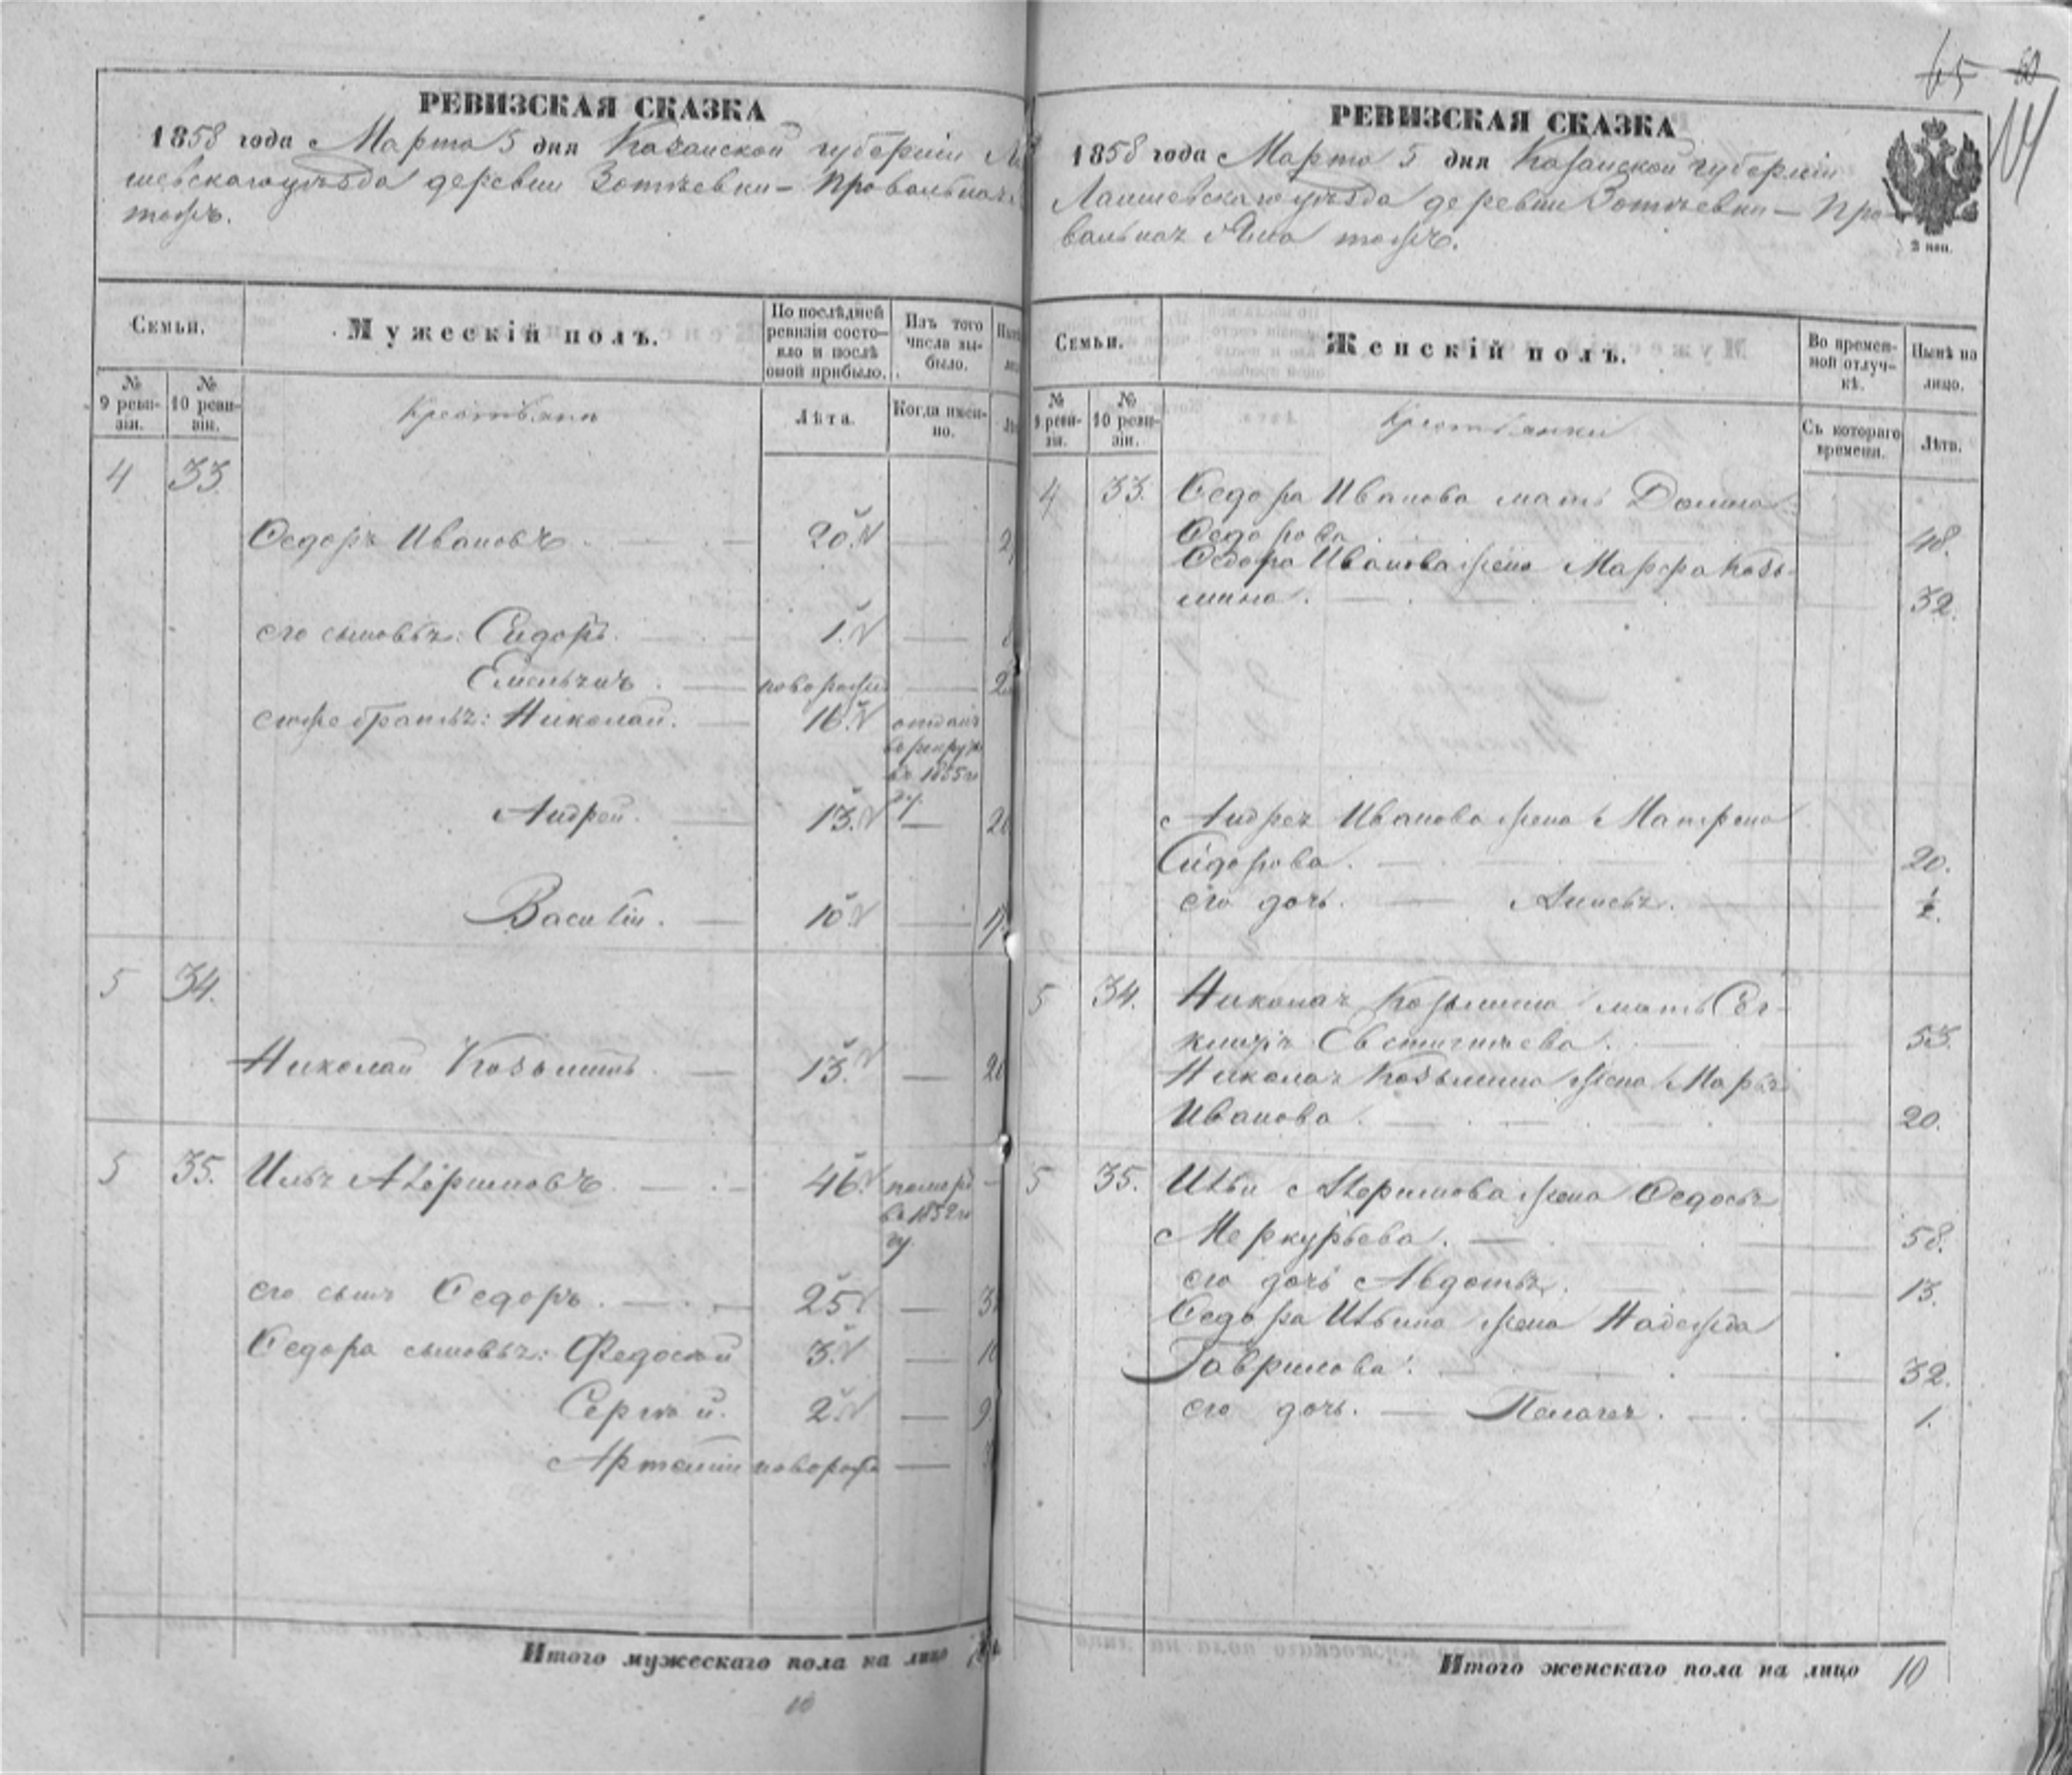 РЕВИЗСКАЯ СКАЗКА
1858 года Марта 5 дня Казанской губерніи
шевскаго уѣзда деревни Зотѣевки - Провальная
тожъ.
Семьи.
Мужескій полъ.
По послѣдней ревизіи состояло и послѣ оной прибыло.
Изъ того числа выбыло.
№ 9 ревизіи.
№ 10 ревизіи.
Крестьяне
Лѣта.
Когда именно.
4 33.
Ѳедоръ Ивановъ 20.
его сыновья: Сидоръ. 1.
Емельянъ. новорожд
его же братья: Николай. 16. отданъ
въ рекруты
въ 1855 го
ду.
Андрей. 13.
Василій. 10.
5 34.
Николай Козьминъ 13.
5 35. Илья Аверьяновъ 46. померъ
въ 1852 го
ду.
его сынъ Ѳедоръ. 25
Ѳедора сыновья: Федосей 3.
Сергѣй. 2.
Артемій новорож
Итого мужескаго пола на лицо
10
65
104
РЕВИЗСКАЯ СКАЗКА
1858 года Марта 5 дня Казанской губерніи
Лаишевскаго уѣзда деревни Зотѣевки - Про-
вальная Яма тожъ.
3 коп.
Семьи.
Женскій полъ.
Во временной отлучкѣ.
Нынѣ на лицо.
№ 9 ревизіи.
№ 10 ревизіи.
Крестьянки
Съ котораго времени.
Лѣта.
4 33. Ѳедора Иванова мать Домна
Ѳедорова 48.
Ѳедора Иванова жена Марфа Козь-
мина. 32.
Андрея Иванова жена Матрена
Сидорова. 20.
его дочь. Анисья. ½.
5 34. Николая Козьмина мать
Евстигнѣева. 53.
Николая Козьмина жена Марья
Иванова. 20.
5 35. Ильи Аверьянова жена Ѳедосья
Меркурьева. 58.
его дочь Авдотья. 13.
Ѳедора Ильина жена Надежда
Гаврилова. 32.
его дочь. Пелагея. 1.
Итого женскаго пола на лицо 10